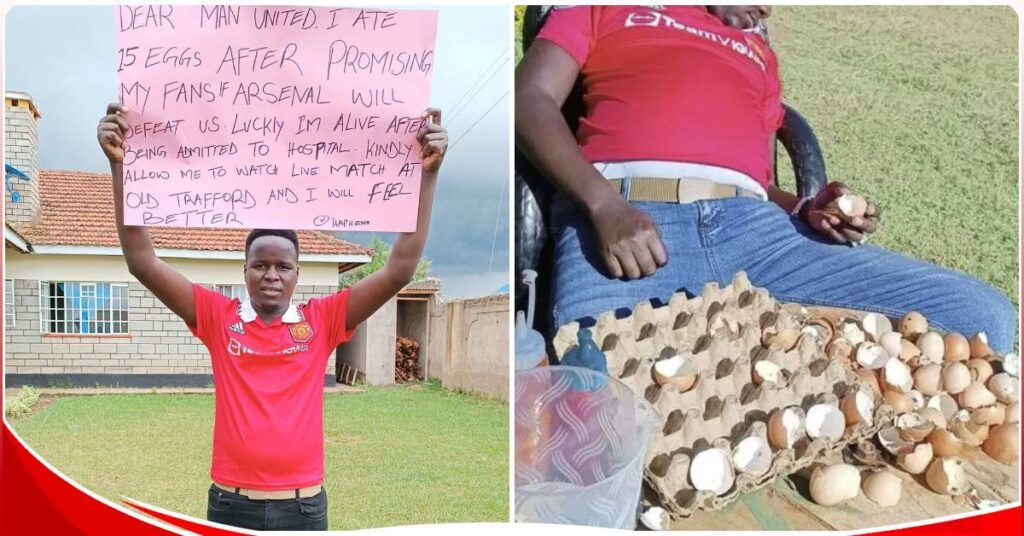 DEAR MAN UNITED. I ATE
15 EGGS AFTER PROMISING
MY FANS IF ARSENAL WILL
DEFEAT US. LUCKLY I'M ALIVE AFTER
BEING ADMITTED TO HOSPITAL. KINDLY
ALLOW ME TO WATCH LIVE MATCH AT
OLD TRAFFORD AND I WILL FEEL
BETTER
adidas
TeamViewer
TeamViewer